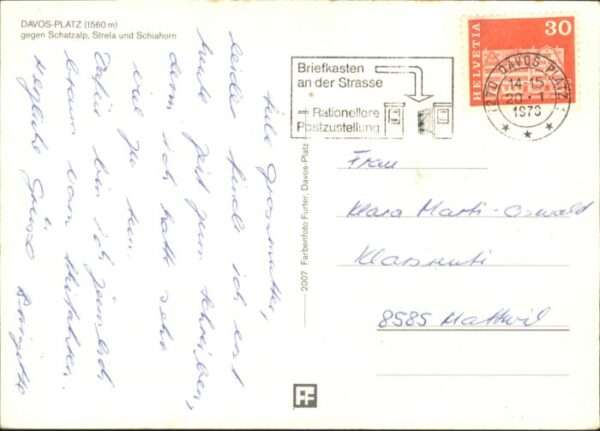 DAVOS-PLATZ (1560 m)
gegen Schatzalp, Strela und Schiahorn
Liebe Grossmutter,
leider finde ich erst
heute Zeit zum Schreiben,
denn ich hatte sehr
viel zu tun.
Dafür bin ich ziemlich
braun vom Skifahren.
Herzliche Grüsse Brigitte
2007 Farbenfoto Furter, Davos-Platz
Briefkasten
an der Strasse
= Rationellere
Postzustellung
HELVETIA 30
7270 DAVOS PLATZ 1
14-15
29. 1.
1973
Frau
Klara Marti-Oswald
Klarsreuti
8585 Mattwil
FF